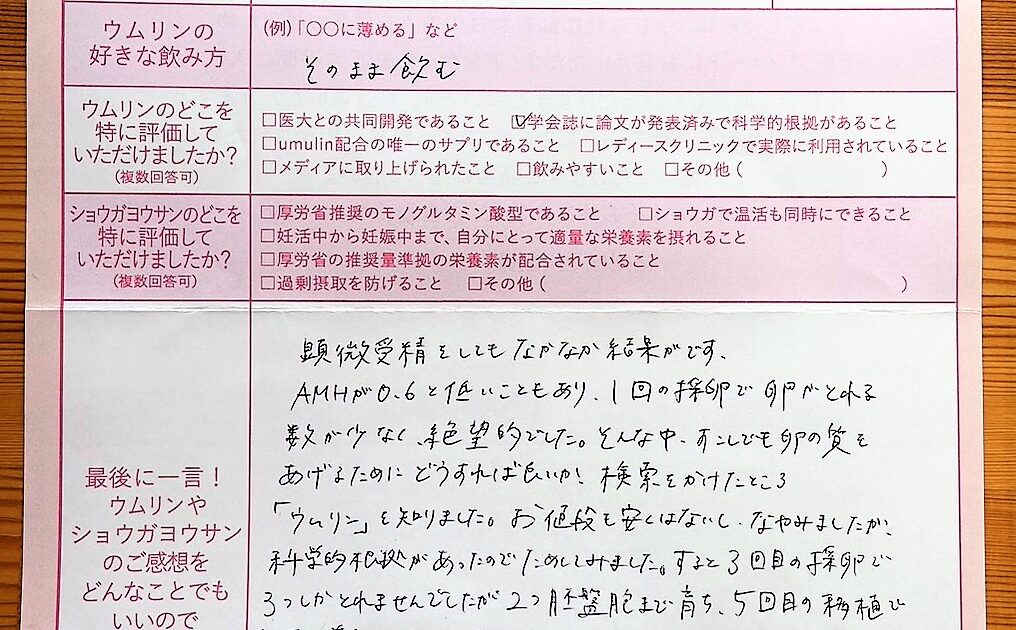 ウムリンの
好きな飲み方
(例)「〇〇に薄める」など
そのまま飲む
ウムリンのどこを
特に評価して
いただけましたか?
(複数回答可)
□医大との共同開発であること ☑学会誌に論文が発表済みで科学的根拠があること
□umulin配合の唯一のサプリであること □レディースクリニックで実際に利用されていること
□メディアに取り上げられたこと □飲みやすいこと □その他( )
ショウガヨウサンのどこを
特に評価して
いただけましたか?
(複数回答可)
□厚労省推奨のモノグルタミン酸型であること □ショウガで温活も同時にできること
□妊活中から妊娠中まで、自分にとって適量な栄養素を摂れること
□厚労省の推奨量準拠の栄養素が配合されていること
□過剰摂取を防げること □その他( )
最後に一言!
ウムリンや
ショウガヨウサン
のご感想を
どんなことでも
いいので
顕微受精をしてもなかなか結果がです、
AMHが0.6と低いこともあり、1回の採卵で卵がとれる
数が少なく、絶望的でした。そんな中、すこしでも卵の質を
あげるためにどうすれば良いか!検索をかけたところ
「ウムリン」を知りました。お値段も安くはないし、なやみましたが、
科学的根拠があったのでためしてみました。すると3回目の採卵で
3つしかとれませんでしたが2つ胚盤胞まで育ち、5回目の移植で